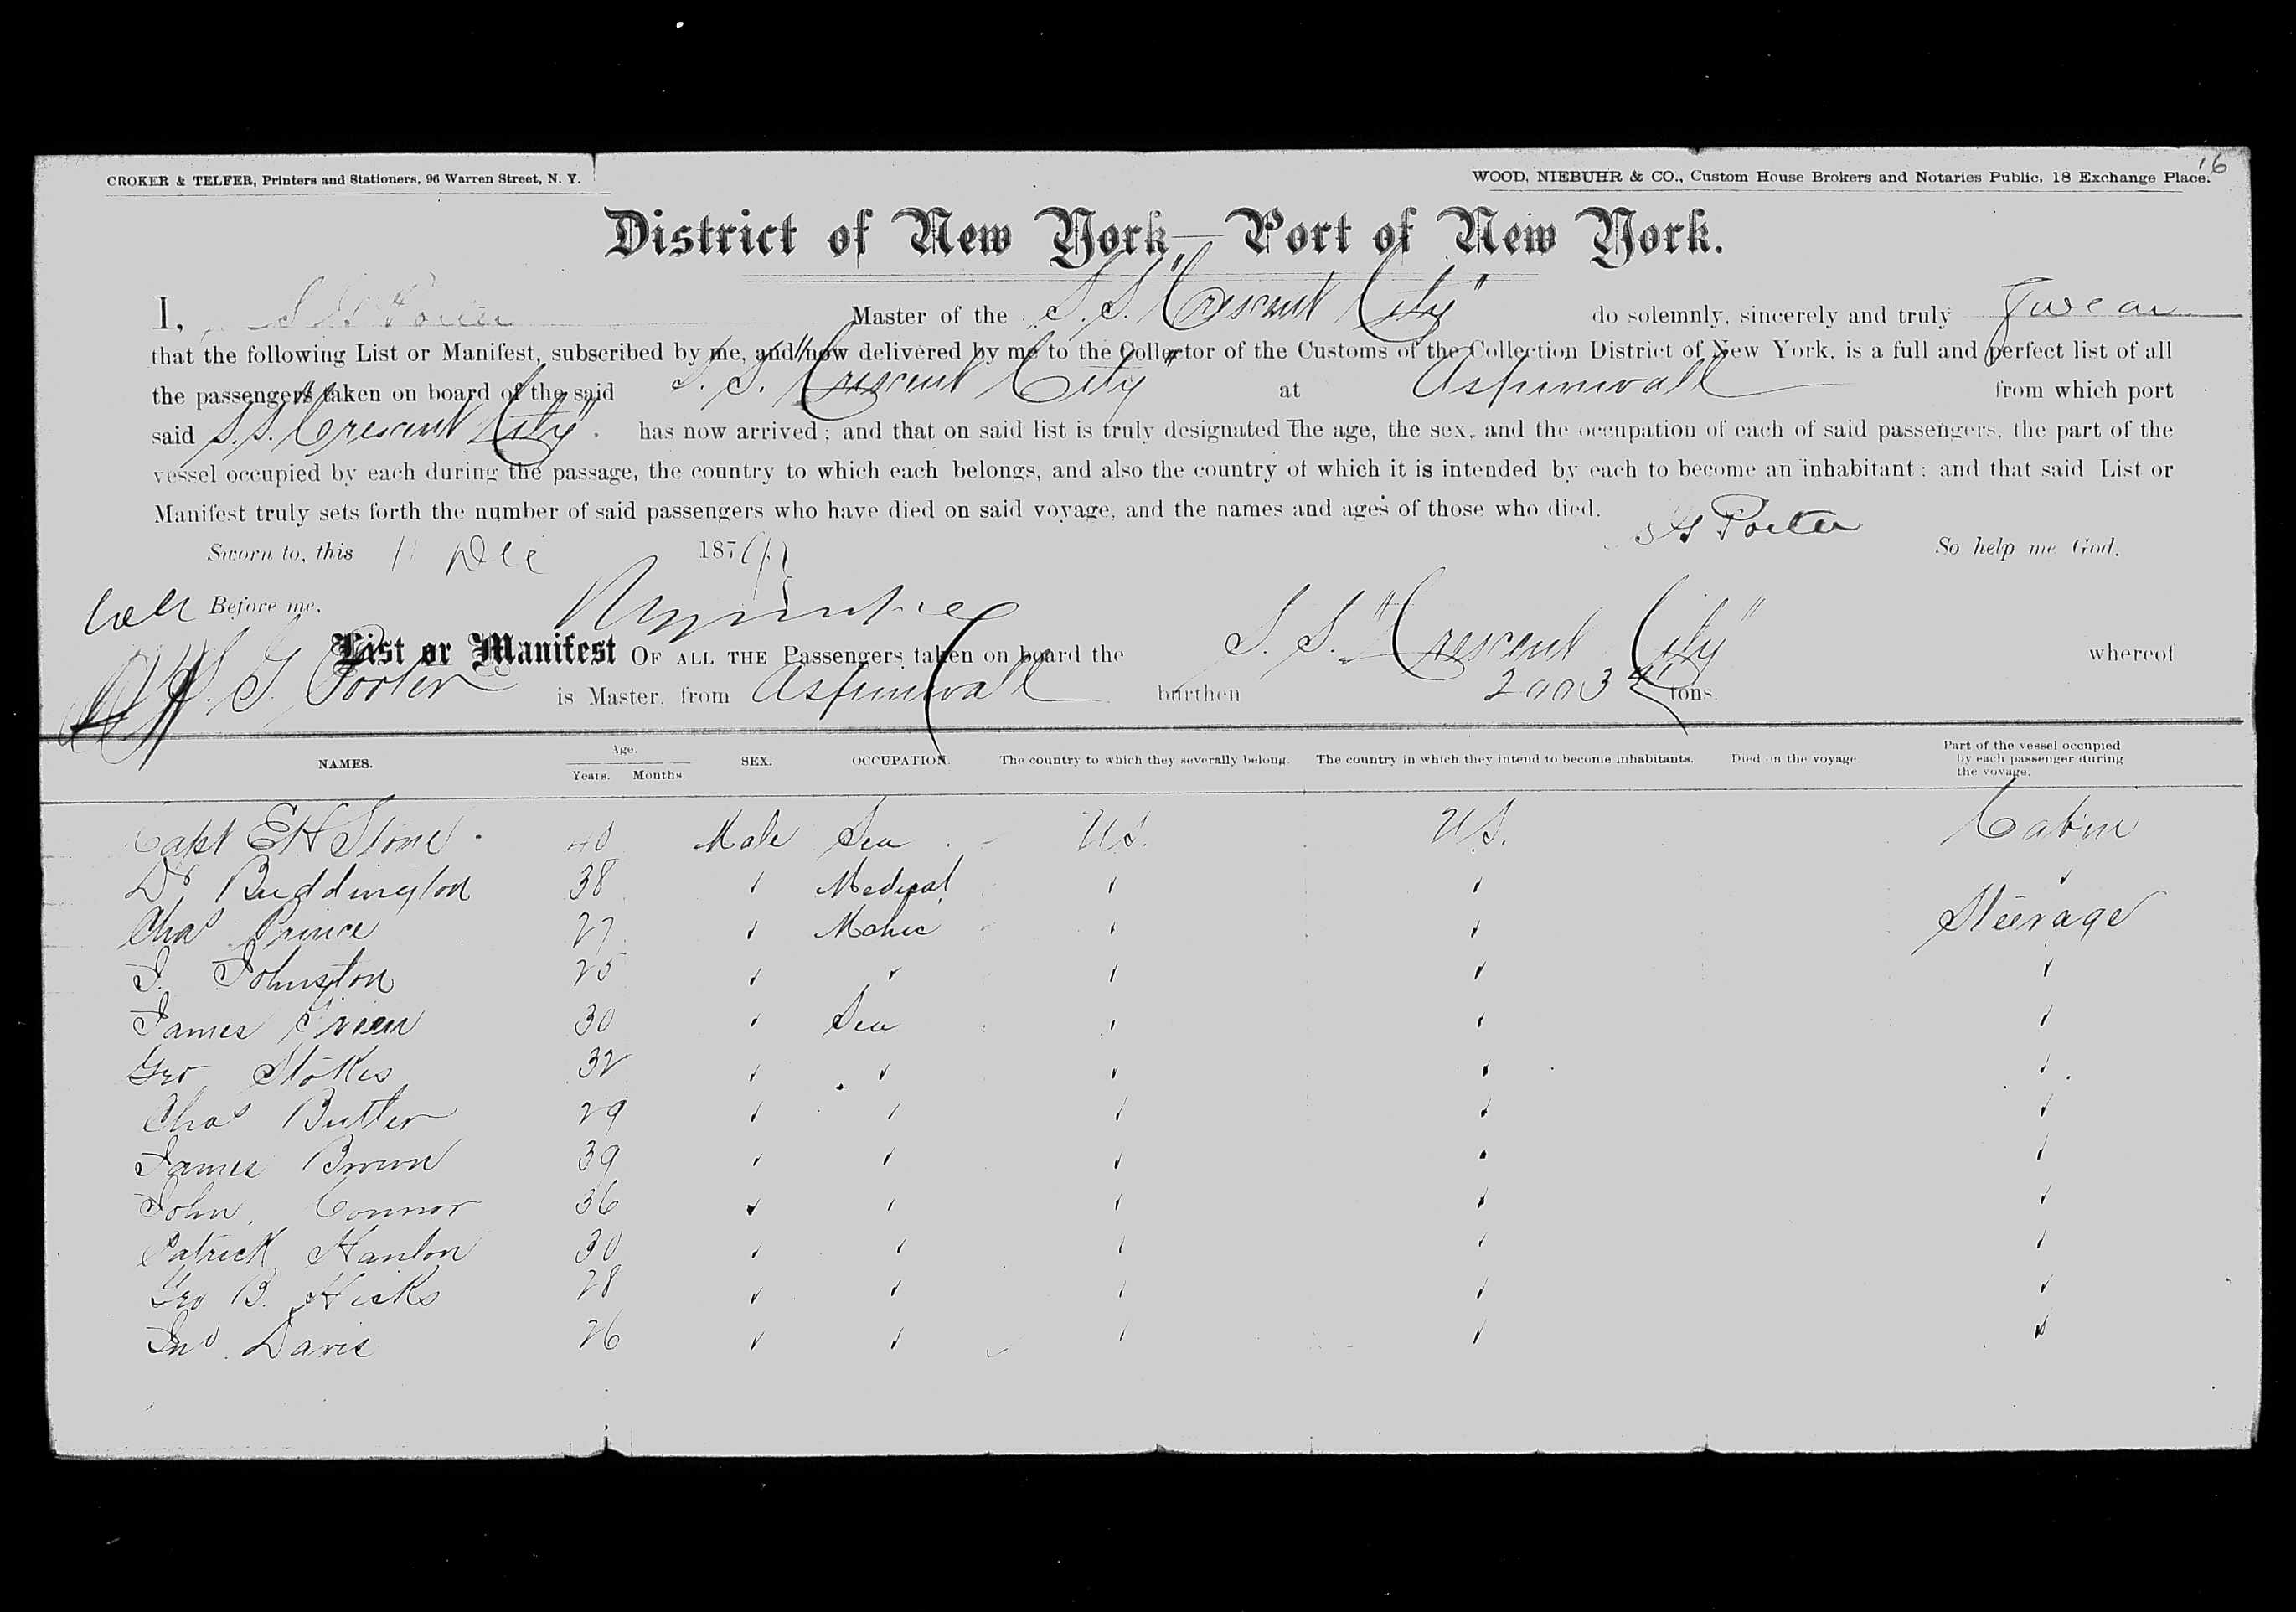 16
CROKER & TELFER, Printers and Stationers, 96 Warren Street, N. Y. WOOD, NIEBUHR & CO., Custom House Brokers and Notaries Public, 18 Exchange Place.
District of New York—Port of New York.
I, S G Porter Master of the S. S. "Crescent City" do solemnly, sincerely and truly swear
that the following List or Manifest, subscribed by me, and now delivered by me to the Collector of the Customs of the Collection District of New York, is a full and perfect list of all
the passengers taken on board of the said S. S. "Crescent City" at Aspinwall from which port
said S. S. "Crescent City" has now arrived; and that on said list is truly designated the age, the sex, and the occupation of each of said passengers, the part of the
vessel occupied by each during the passage, the country to which each belongs, and also the country of which it is intended by each to become an inhabitant: and that said List or
Manifest truly sets forth the number of said passengers who have died on said voyage, and the names and ages of those who died.
S G Porter
Sworn to, this 11 Dec 187 So help me God.
Before me,
List or Manifest OF ALL THE Passengers taken on board the S. S. "Crescent City" whereof
S. G. Porter is Master, from Aspinwall burthen 2003 tons.
NAMES. Age. Years. Months. SEX. OCCUPATION. The country to which they severally belong. The country in which they intend to become inhabitants. Died on the voyage. Part of the vessel occupied by each passenger during the voyage.
Capt EH Stone 40 Male Sea US. US. Cabin
Dr Buddington 38 " Medical " " "
Chas Prince 27 " Mchic " " Steerage
J. Johnston 25 " " " " "
James Green 30 " Sea " " "
Geo Stokes 32 " " " " "
Chas Butler 29 " " " " "
James Brown 39 " " " " "
John Connor 36 " " " " "
Patrick Hanlon 30 " " " " "
Geo B. Hicks 28 " " " " "
Jno Davis 26 " " " " "